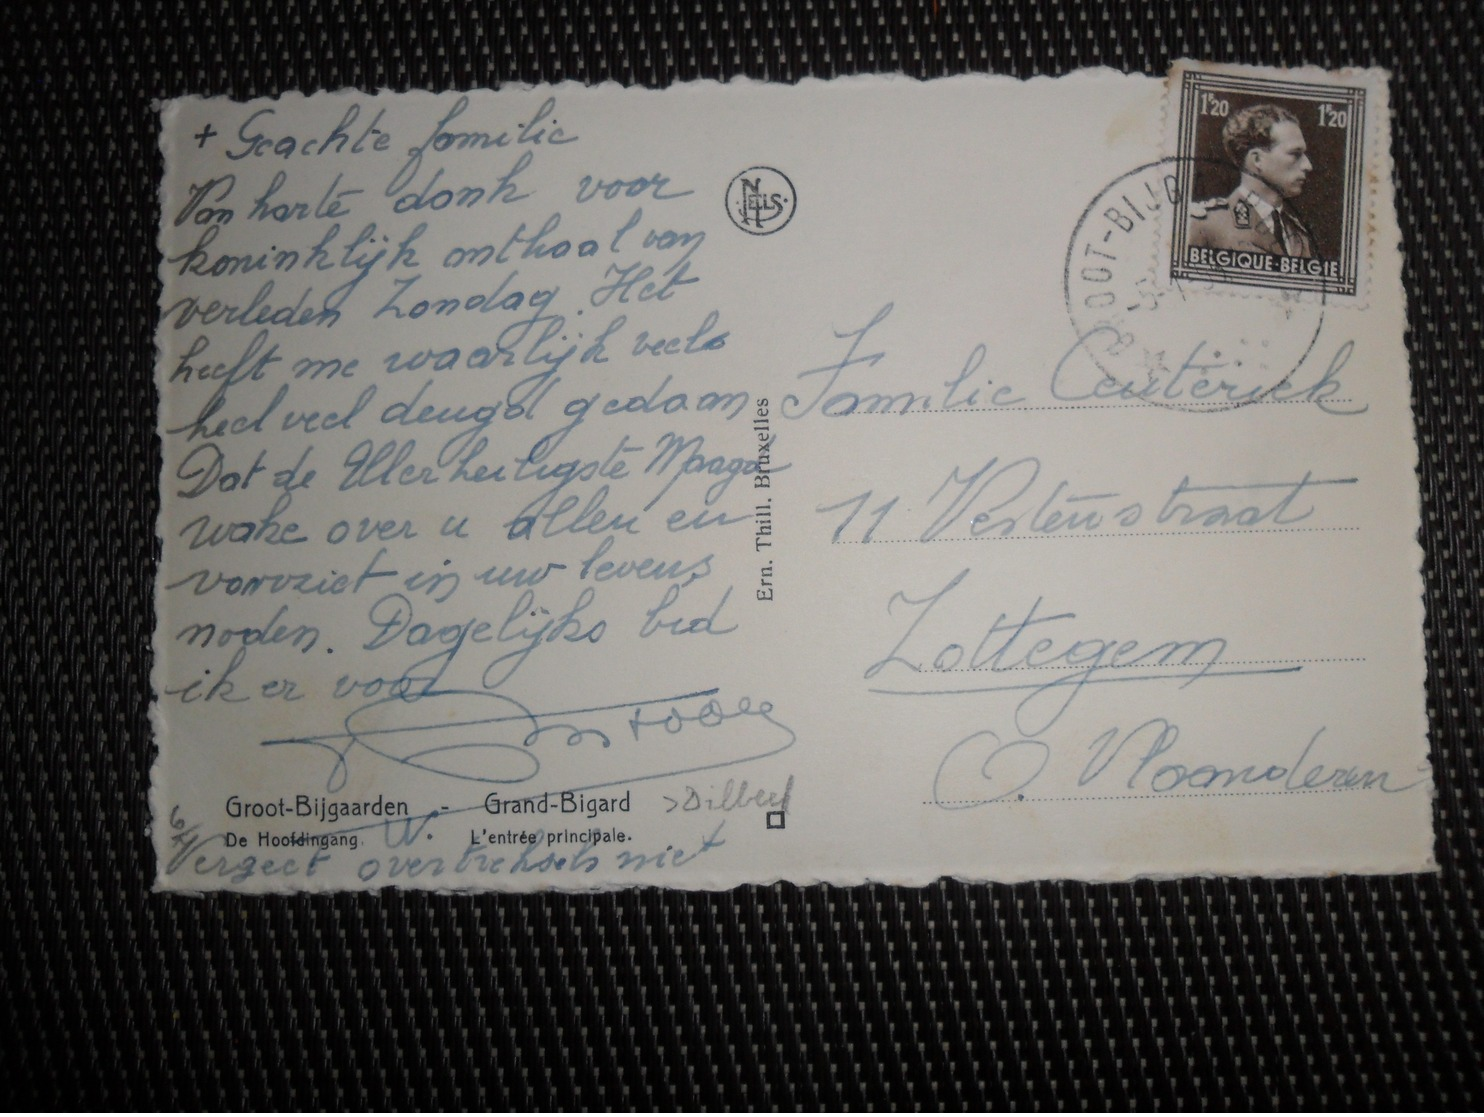 + Geachte familie
Van harte dank voor
koninklijk onthaal van
verleden Zondag. Het
heeft me waarlijk veel
heel veel deugd gedaan
Dat de Allerheiligste Maagd
wake over u allen en
voorziet in uw levens
noden. Dagelijks bid
ik er voor
Groot-Bijgaarden - Grand-Bigard >Dilbeek
De Hoofdingang. L'entrée principale.
W.
Vergeet overtreksels niet
NELS
Ern. Thill. Bruxelles
1F20 1F20
BELGIQUE-BELGIE
GROOT-BIJG
Familie Ceuterick
11 Vestenstraat
Zottegem
O. Vlaanderen